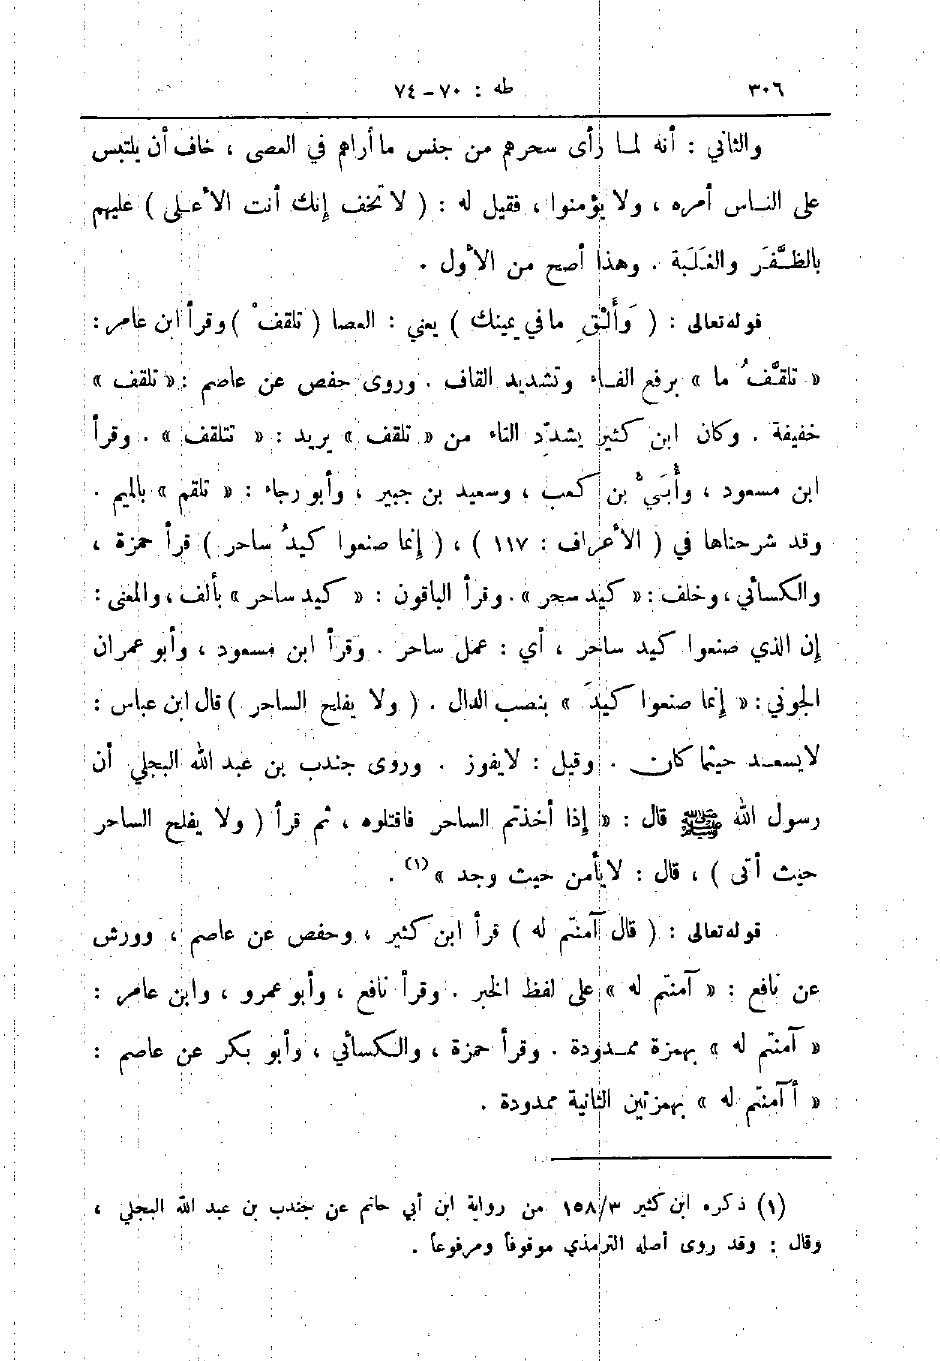 ٣٠٦ طه : ٧٠-٧٤
والثاني : أنه لمـا رأى سحرهم من جنس ما أراهم في العصى ، خاف أن يلتبس
على النـاس أمره ، ولا يؤمنوا ، فقيل له : ( لا تخف إنك أنت الأعـلى ) عليهم
بالظـَّفَر والغَلَبة . وهذا أصح من الأول .
قوله تعالى : ( وَأَلْقِ ما في يمينك ) يعني : العصا ( تلقفْ ) وقرأ ابن عامر :
« تلقَّفُ ما » برفع الفـاء وتشديد القاف . وروى حفص عن عاصم : « تلقف »
خفيفة . وكان ابن كثير يشدِّد التاء من « تلقف » يريد : « تتلقف » . وقرأ
ابن مسعود ، وأُبَيّ بن كعب ، وسعيد بن جبير ، وأبو رجاء : « تلقم » بالميم .
وقد شرحناها في ( الأعراف : ١١٧ ) ، ( إنما صنعوا كيدُ ساحر ) قرأ حمزة ،
والكسائي ، وخلف : « كيد سحر » . وقرأ الباقون : « كيد ساحر » بألف ، والمعنى :
إن الذي صنعوا كيد ساحر ، أي : عمل ساحر . وقرأ ابن مسعود ، وأبو عمران
الجوني : « إنما صنعوا كيدَ » بنصب الدال . ( ولا يفلح الساحر ) قال ابن عباس :
لا يسعـد حيثما كان . وقيل : لا يفوز . وروى جندب بن عبد الله البجلي أن
رسول الله ﷺ قال : « إذا أخذتم الساحر فاقتلوه ، ثم قرأ ( ولا يفلح الساحر
حيث أتى ) ، قال : لا يأمن حيث وجد » (١) .
قوله تعالى : ( قال آمنتم له ) قرأ ابن كثير ، وحفص عن عاصم ، وورش
عن نافع : « آمنتم له » على لفظ الخبر . وقرأ نافع ، وأبو عمرو ، وابن عامر :
« آمنتم له » بهمزة ممـدودة . وقرأ حمزة ، والكسائي ، وأبو بكر عن عاصم :
« أآمنتم له » بهمزتين الثانية ممدودة .
(١) ذكره ابن كثير ١٥٨/٣ من رواية ابن أبي حاتم عن جندب بن عبد الله البجلي ،
وقال : وقد روى أصله الترمذي موقوفاً ومرفوعاً .